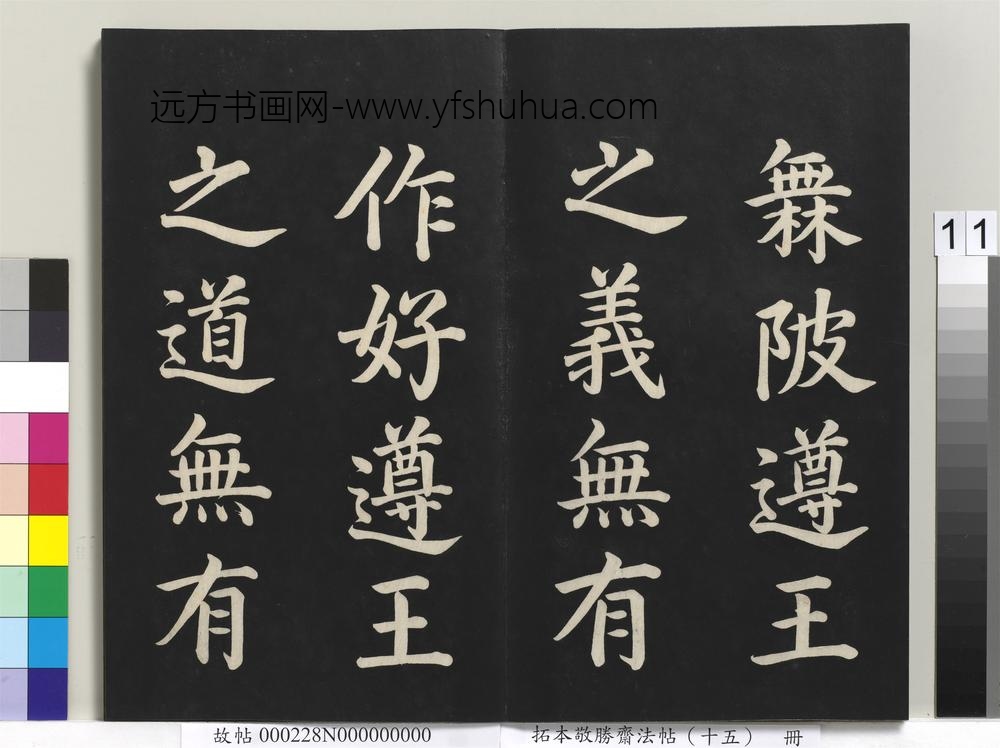 远方书画网-www.yfshuhua.com
橆陂遵王
之義無有
作好遵王
之道無有
11
故帖 000228N000000000
拓本敬勝齋法帖（十五） 冊